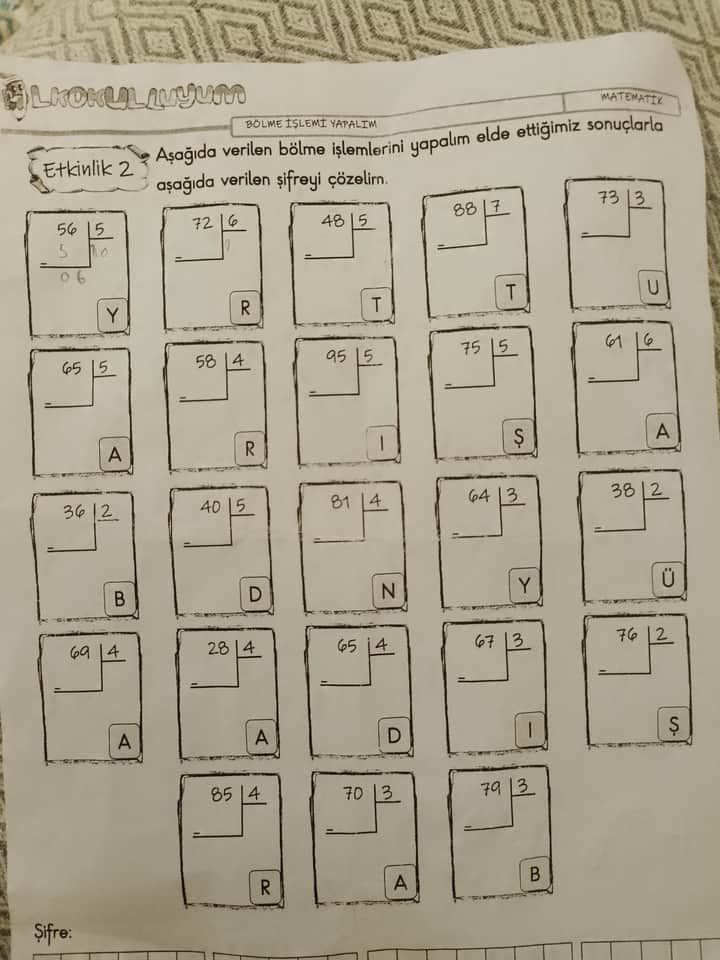 İLKOKULLUYUM
MATEMATİK
BÖLME İŞLEMİ YAPALIM
Etkinlik 2
Aşağıda verilen bölme işlemlerini yapalım elde ettiğimiz sonuçlarla
aşağıda verilen şifreyi çözelim.
56 5 72 6 48 5 88 7 73 3
5 10
06
Y R T T U
65 5 58 4 95 5 75 5 61 6
A R I Ş A
36 2 40 5 81 4 64 3 38 2
B D N Y Ü
69 4 28 4 65 4 67 3 76 2
A A D I Ş
85 4 70 3 79 3
R A B
Şifre: